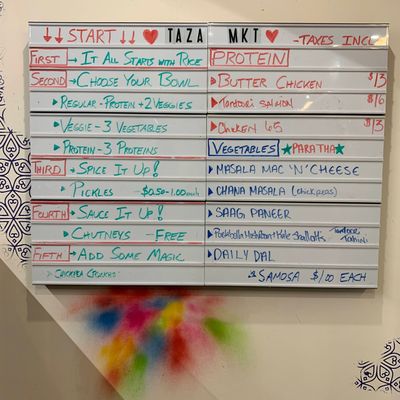 ↓↓ START ↓↓ ♥ TAZA MKT ♥ -TAXES INCL
FIRST → IT ALL STARTS WITH RICE
SECOND → CHOOSE YOUR BOWL
▸ REGULAR-PROTEIN+2 VEGGIES
▸ VEGGIE-3 VEGETABLES
▸ PROTEIN-3 PROTEINS
THIRD → SPICE IT UP!
▸ PICKLES -$0.50-1.00 each
FOURTH → SAUCE IT UP!
▸ CHUTNEYS - FREE
FIFTH → ADD SOME MAGIC
▸ CHICKPEA CROUTONS
PROTEIN
▸ BUTTER CHICKEN $13
▸ Tandoori SALMON $16
▸ CHICKEN 65 $13
VEGETABLES ★PARATHA★
▸ MASALA MAC 'N' CHEESE
▸ CHANA MASALA (chickpeas)
▸ SAAG PANEER
▸ Portobello Mushroom + Kale Shallots
▸ DAILY DAL
SAMOSA $1.00 EACH